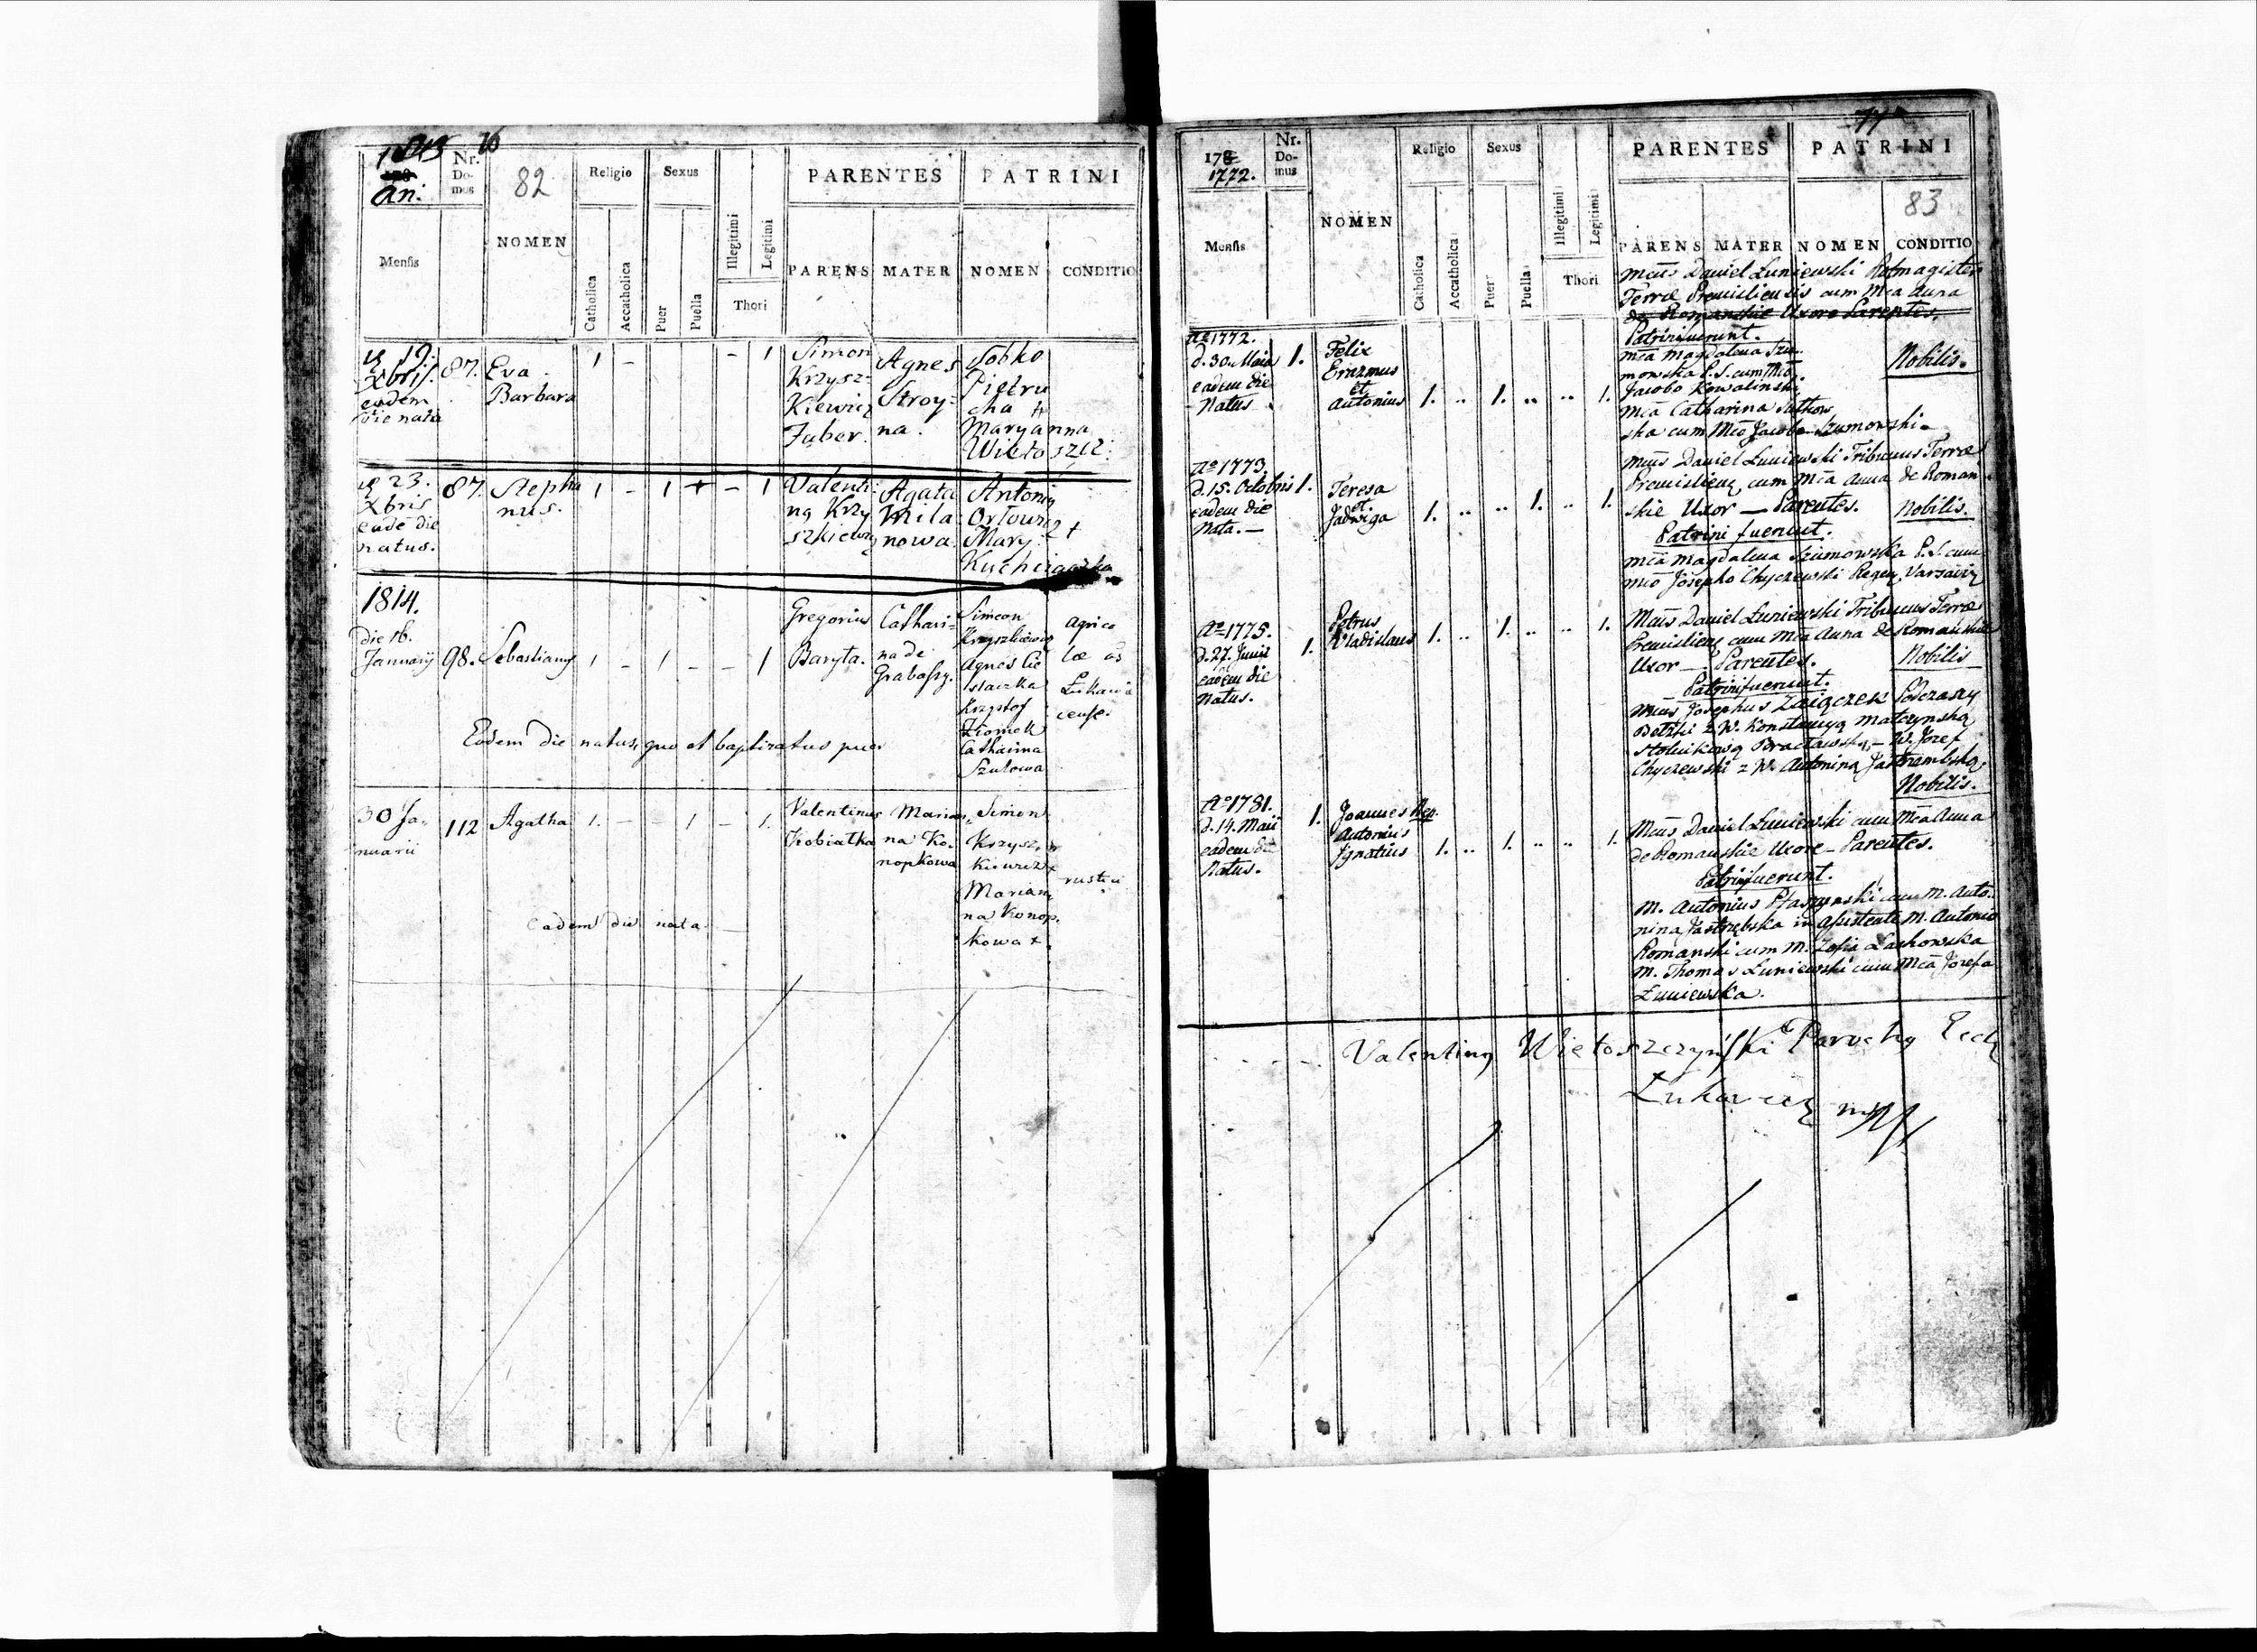 1813 76
an:
Nr. Domus
82
NOMEN
Religio
Sexus
Catholica
Accatholica
Puer
Puella
Illegitimi
Legitimi
Thori
PARENTES
PATRINI
Mensis
PARENS
MATER
NOMEN
CONDITIO
19.
Xbris.
eadem
die nata
87.
Eva
Barbara
1 - - 1
Simon
Krzysz-
Kiewicz
Faber.
Agnes
Stroy-
na.
Sobko
Pietru
cha +
Maryanna
Wietoszcz.
23.
Xbris
eade die
natus.
87.
Stepha
nus.
1 - 1 + - 1
Valenti
ng Krzy
szkiewicz
Agata
Mila
nowa
Antonig
Orłowicz +
Mary.
1814.
die 16.
Januarij
98.
Sebastiang
1 - 1 - - 1
Gregorius
Baryta.
Cathari-
na de
Grabassy.
Simeon
Krzyszkiewicz
Agnes Cie
slaczka
Krzysztof
Ziomek
Catharina
Szulowa
agrico
læ
Łukawie
cense.
Eodem die natus, quo et baptizatus puer
30 Ja-
nuarii
112
Agatha
1. - - 1 - 1.
Valentinus
Kobiałka
Marian-
na Ko-
nopkowa
Simon
Krzysz-
kiewicz +
Marian
na Konop.
kowa +
rustici
Eadem die nata
77
178
1772.
Nr. Domus
Mensis
NOMEN
Religio
Sexus
Catholica
Accatholica
Puer
Puella
Illegitimi
Legitimi
Thori
PARENTES
PATRINI
83
PARENS
MATER
NOMEN
CONDITIO
Mcus Daniel Łuniewski Rotmagister
Terræ Premisliensis cum Mca Anna
de Romanskie Uxore Parentes.
Ao 1772.
d. 30. Maia
eadem die
Natus
1.
Felix
Erazmus
et
Antonius
1. .. 1. .. .. 1.
Patrini fuerunt.
Mca Magdalena Szu-
mowska P. S. cum Mco
Jacobo Kowalinski
Mca Catharina Sutkow
ska cum Mco Jacobo Szumowski
Nobilis.
Ao 1773.
d. 15. Octobris
eadem die
Nata. —
1.
Teresa
et
Jadwiga
1. .. .. 1. .. 1.
Mcus Daniel Łuniewski Tribunus Terræ
Premislieng cum Mca Anna de Roman
skie Uxor — Parentes.
Nobilis.
Patrini fuerunt.
Mca Magdalena Szumowska P. S. cum
Mco Josepho Chyczewski Regen. Varsavię
Ao 1775.
d. 27. Junii
eadem die
Natus.
1.
Petrus
Wladislaus
1. .. 1. .. .. 1.
Mcus Daniel Łuniewski Tribunus Terræ
Premislieng cum Mca Anna de Romanskie
Uxor — Parentes.
Nobilis
Patrini fuerunt.
Mcus Josephus Zaiączek Podczaszy
Bełzki z W. Konstancyą Matczynską
Stolnikową Bracławską — W. Jozef
Chyczewski z W. Antoniną Jastrzembską
Nobilis.
Ao 1781.
d. 14. Maii
eadem die
Natus.
1.
Joannes Nep.
Antonius
Ignatius
1. .. 1. .. .. 1.
Mcus Daniel Łuniewski cum Mca Anna
de Romanskie Uxore — Parentes.
Patrini fuerunt.
M. Antonius Ptaszynski cum M. Anto-
nina Jastrzębska in Assistentia M. Antonio
Romanski cum M. Zofia Lachowska
M. Thomas Łuniewski cum Mca Jozefa
Łuniewska.
Valenting Wietoszczyński Parochg Eccl
Łukawiecz mp